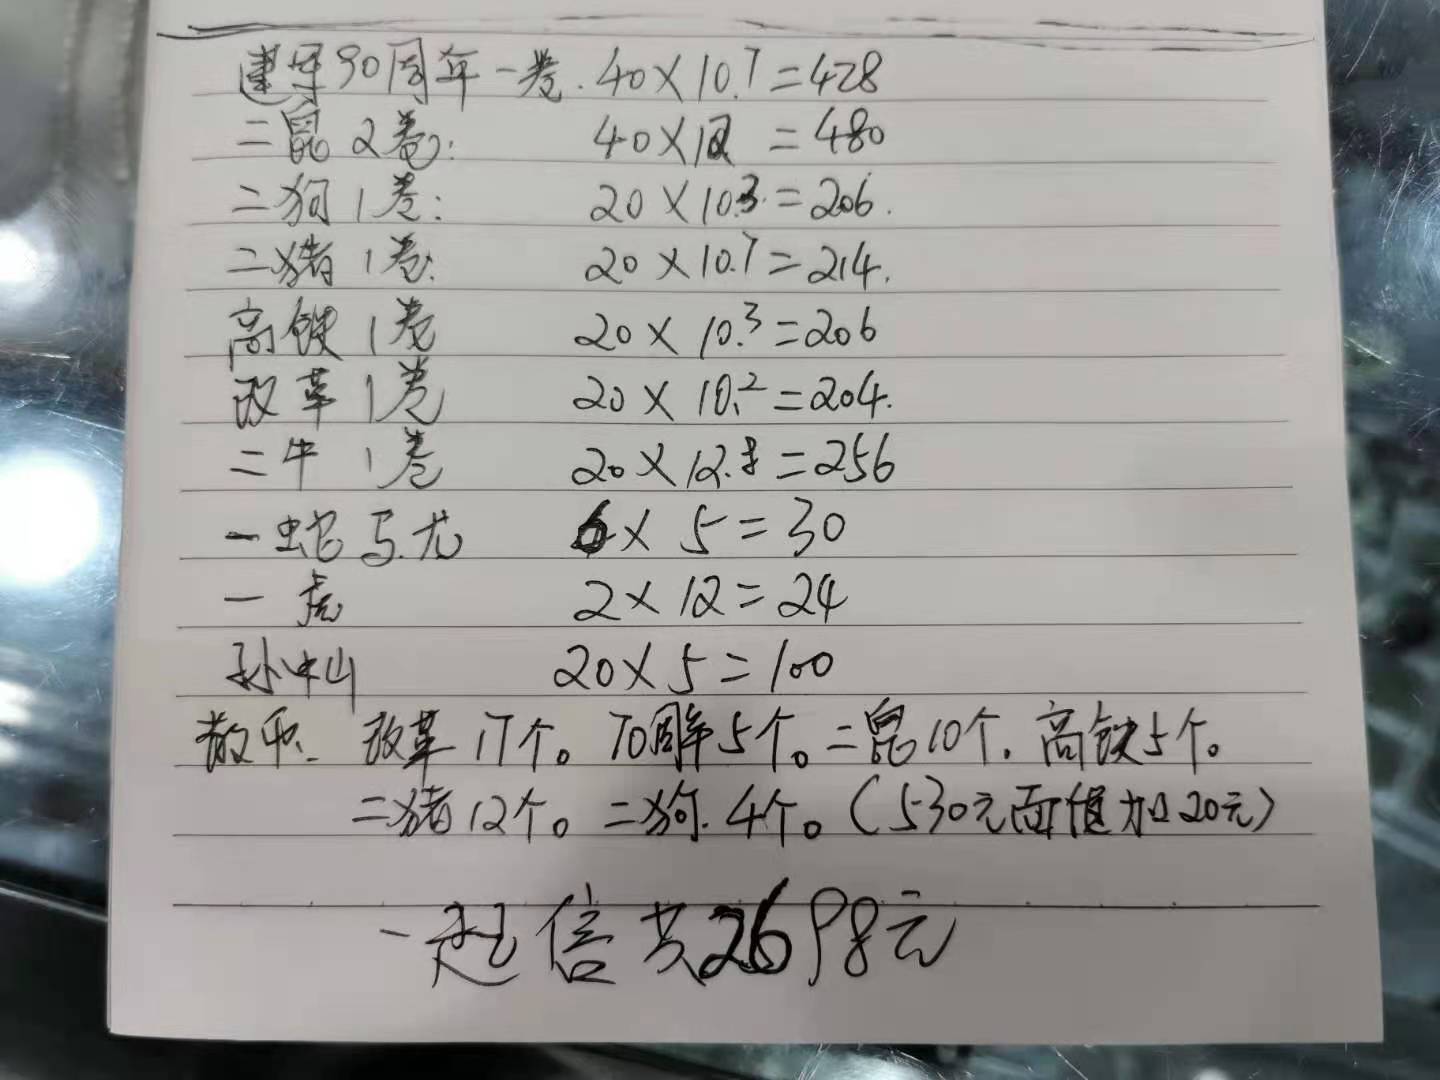 建军90周年一卷. 40×10.7=428
二鼠2卷: 40×12 =480
二狗1卷: 20×10.3=206.
二猪1卷: 20×10.7=214.
高铁1卷 20×10.3=206
改革1卷 20×10.2=204.
二牛1卷 20×12.8=256
一蛇马尤 6×5=30
一虎 2×12=24
孙中山 20×5=100
散币. 改革17个。70周年5个。二鼠10个.高铁5个。
二猪12个。二狗.4个。(530元面值加20元)
一起信共2698元